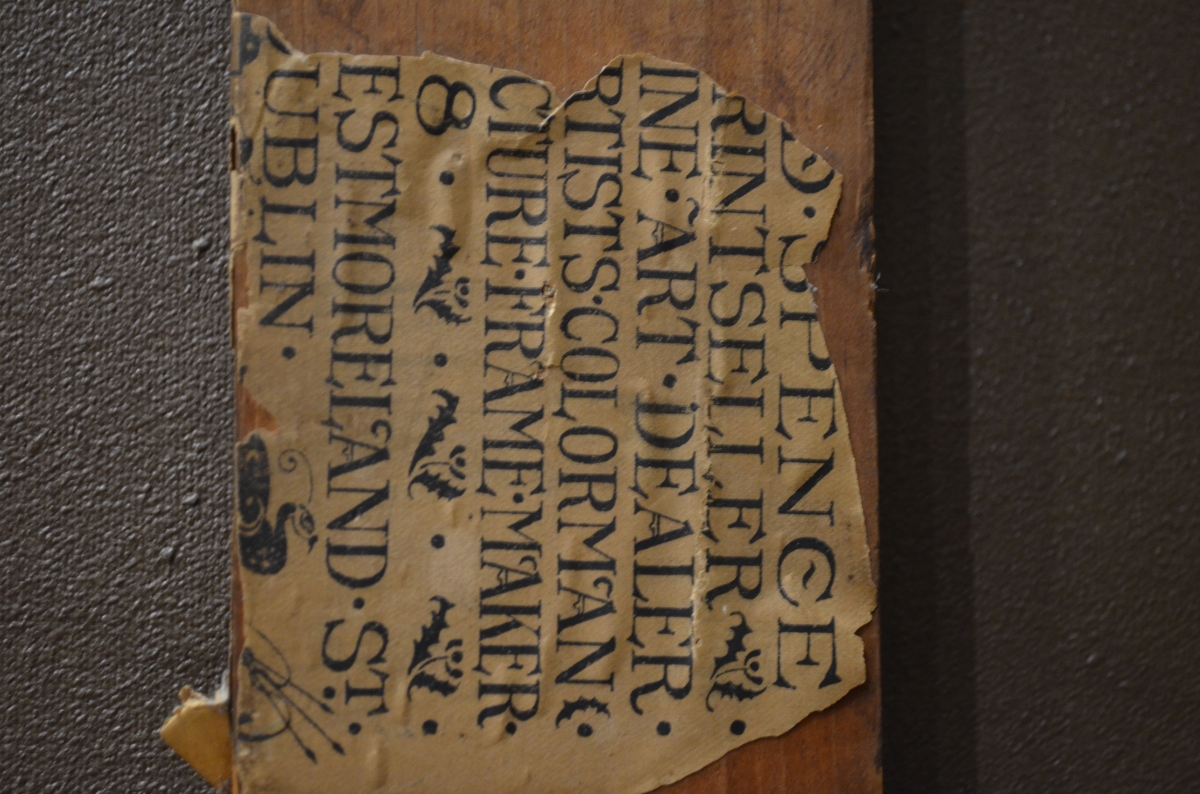 D · SPENCE
RINTSELLER ·
INE · ART · DEALER ·
RTISTS · COLORMAN ·
CTURE · FRAME · MAKER ·
8 · · · ·
ESTMORELAND · ST. ·
UBLIN ·